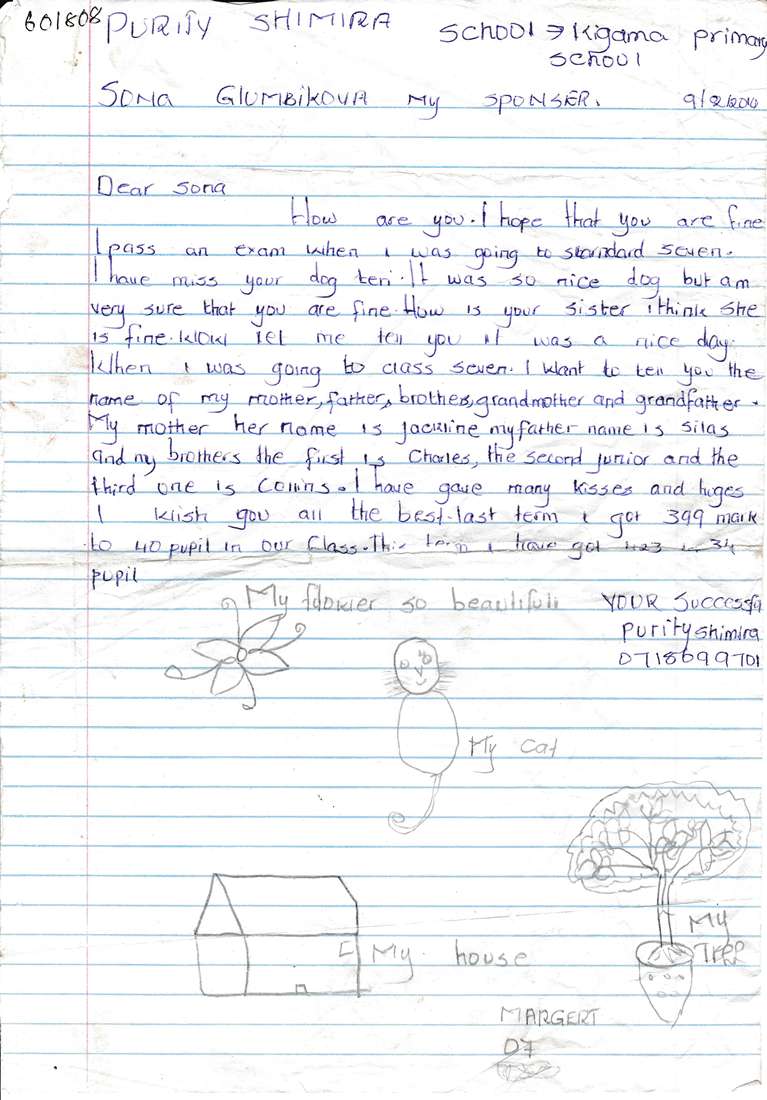 601808 PURITY SHIMIRA SCHOOL → Kigama primary
SCHOOL
SONA GLUMBIKOVA My SPONSER. 9/2/2010
Dear Sona
How are you. I hope that you are fine
I pass an exam when i was going to standard seven.
I have miss your dog teri. It was so nice dog but am
very sure that you are fine. How is your sister i think she
is fine. Now let me tell you it was a nice day.
When i was going to class seven. I want to tell you the
name of my mother, father, brothers, grandmother and grandfather.
My mother her name is jackline my father name is Silas
and my brothers the first is Charles, the second junior and the
third one is Collins. I have gave many kisses and huges
I wish you all the best. last term i got 399 mark
to 40 pupil in our Class. This term i have got 423 34
pupil
My flower so beautifull YOUR Successful
purity shimira
0718699701
My cat
My
Tree
My house
MARGERT
07